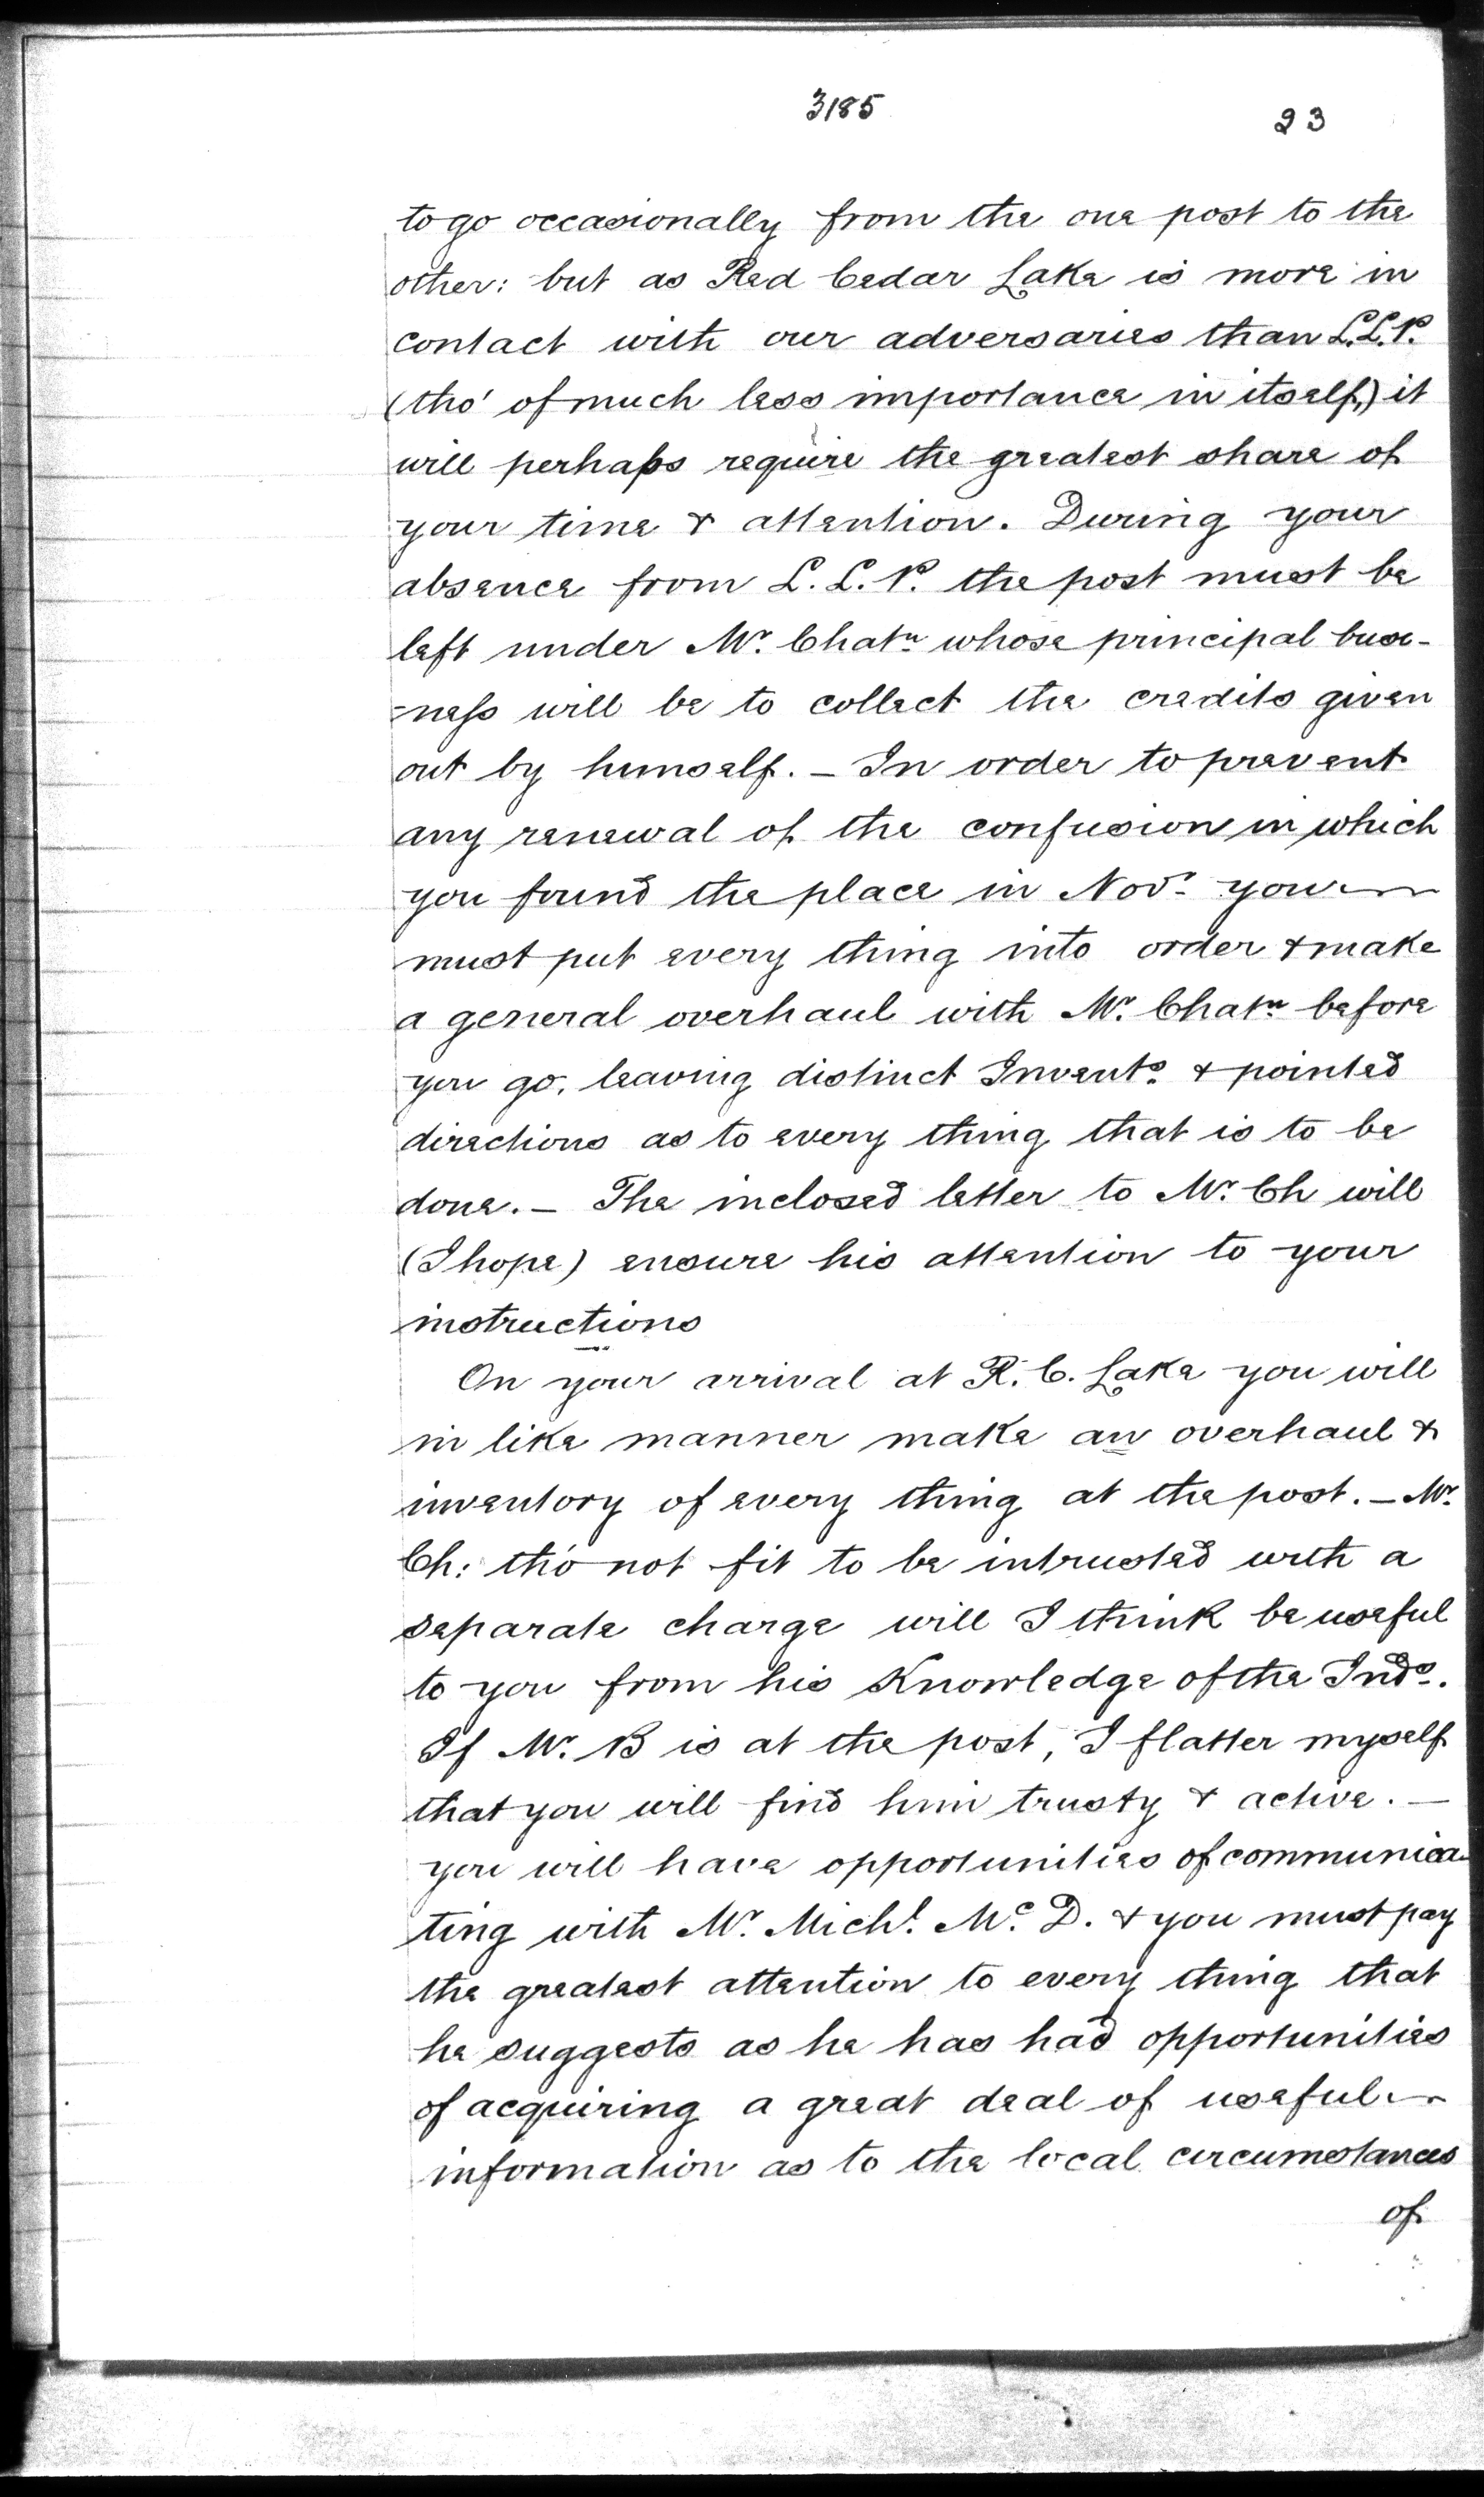 3185
23
to go occasionally from the one post to the
other: but as Red Cedar Lake is more in
contact with our adversaries than L.L.P.
(tho' of much less importance in itself,) it
will perhaps require the greatest share of
your time & attention. During your
absence from L.L.P. the post must be
left under Mr. Chatn whose principal busi-
-ness will be to collect the credits given
out by himself. — In order to prevent
any renewal of the confusion in which
you found the place in Novr you
must put every thing into order & make
a general overhaul with Mr. Chatn before
you go, leaving distinct Invents & pointed
directions as to every thing that is to be
done. — The inclosed letter to Mr. Ch will
(I hope) ensure his attention to your
instructions
On your arrival at R. C. Lake you will
in like manner make an overhaul &
inventory of every thing at the post. — Mr.
Ch: tho' not fit to be intrusted with a
separate charge will I think be useful
to you from his Knowledge of the Inds.
If Mr. B is at the post, I flatter myself
that you will find him trusty & active. —
you will have opportunities of communica-
ting with Mr. Michl. Mc. D. & you must pay
the greatest attention to every thing that
he suggests as he has had opportunities
of acquiring a great deal of useful
information as to the local circumstances
of